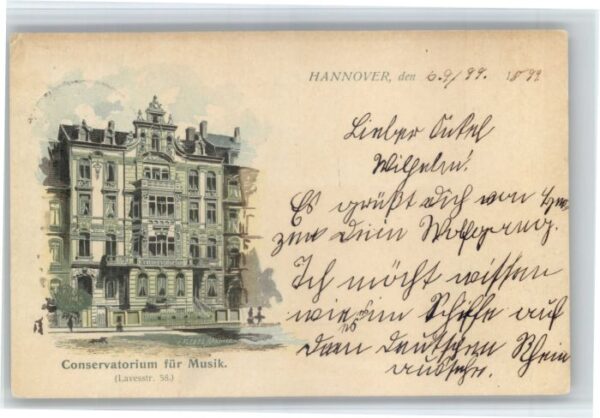 HANNOVER, den 6.9/99. 1899
Lieber Onkel
Wilhelm!
Es grüßt Dich von Her-
zen Dein Wolfgang.
Ich möcht wissen
wie es im Schiffe auf
dem deutschen Rhein
aussehe.
Conservatorium für Musik.
(Lavesstr. 58.)